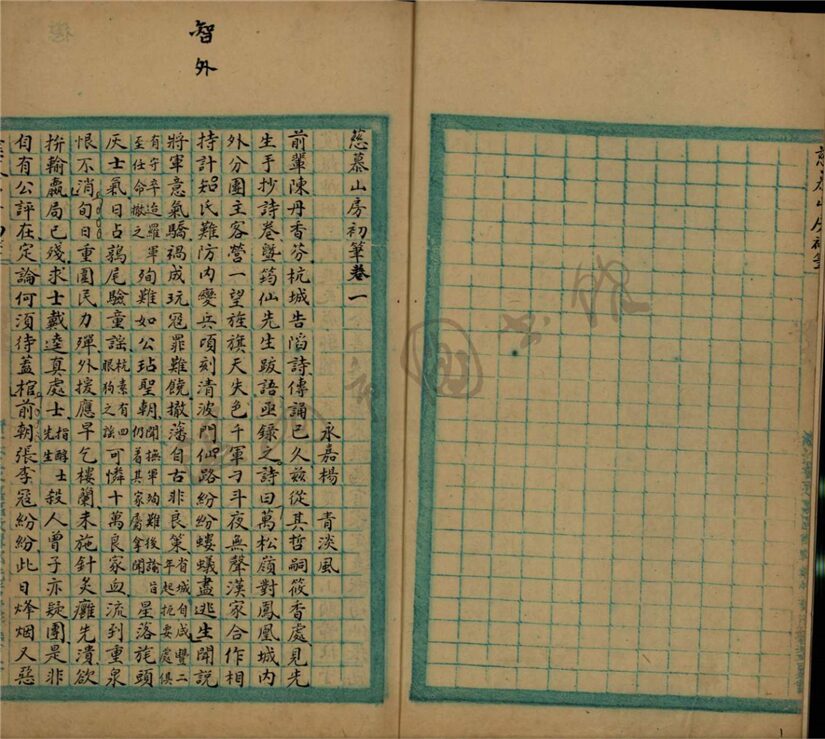 慈慕山房初筆
智外
慈慕山房初筆卷一
永嘉楊青淡風
前輩陳丹香芬杭城告陷詩傳誦已久茲從其哲嗣筱香處見先
生手抄詩卷曁筠仙先生跋語亟錄之詩曰萬松嶺對鳳凰城内
外分圍主客營一望旌旗天失色千軍刁斗夜無聲漢家合作相
持計知氏難防内變兵頃刻清波門仙路紛紛螻蟻盡逃生聞説
將軍意氣驕禍成玩寇罪難饒撤藩自古非良策省城自咸豐二年起扼要處俱
有守卒迨羅軍至任命撤之殉難如公玷聖朝聞撫軍殉難後諭旨仍著其家屬拿問星落旄頭
灰士氣日占鶉尾驗童謠杭素有四眼狗之謠可憐十萬良家血流到重泉
恨不消旬日重圍民力殫外援應早乞樓蘭未施針灸癰先潰欲
拚輸贏局已殘求士戴逵真處士指醉士先生殺人曾子亦疑團是非
自有公評在定論何須待蓋棺前朝張李寇紛紛此日烽烟又惡